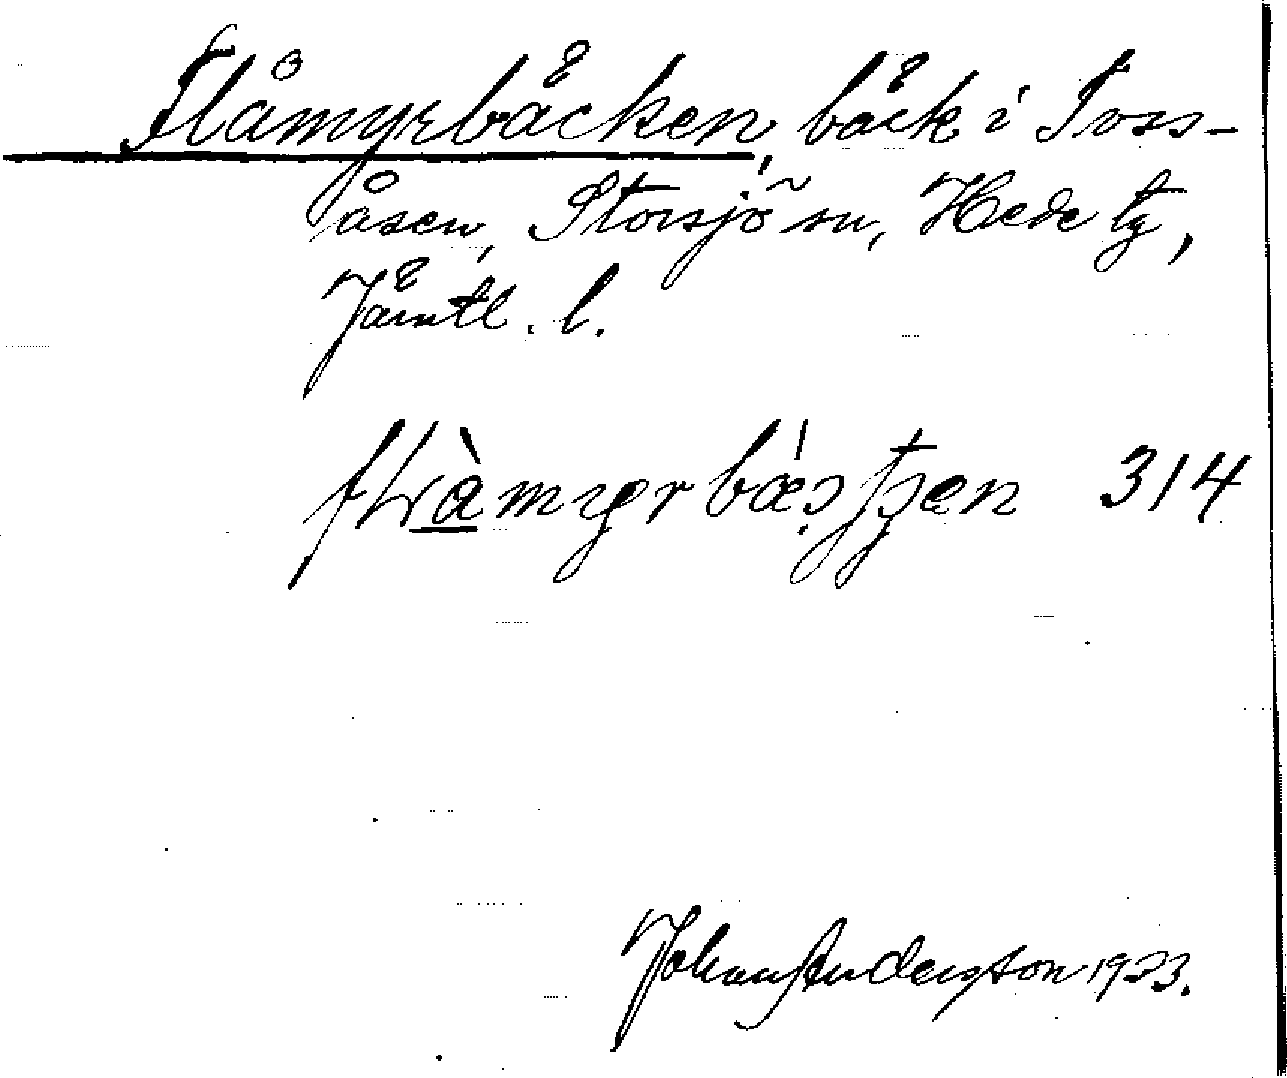 Flåmyrbäcken, bäck i Toss-
åsen, Storsjö sn, Hede tg,
Jämtl. l.
314
Johan Anderson 1923.